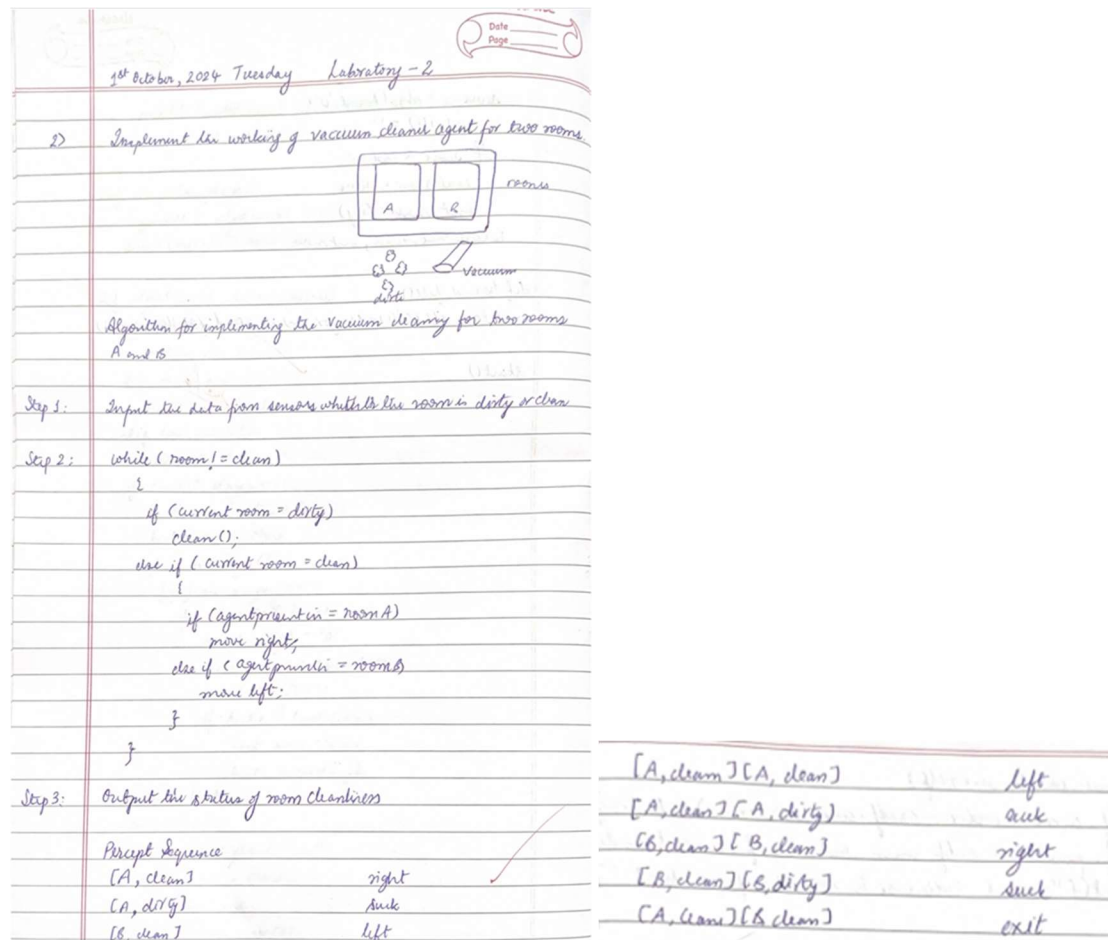 Date
Page
1st October, 2024 Tuesday Laboratory - 2
2) Implement the working of vaccuum cleaner agent for two rooms.
rooms
A B
Vacuum
dirts
Algorithm for implementing the Vacuum cleaning for two rooms
A and B
Step 1: Input the data from sensors whether the room is dirty or clean
Step 2: while (room! = clean)
{
if (current room = dirty)
clean();
else if (current room = clean)
{
if (agent present in = room A)
move right;
else if (agent present in = room B)
move left;
}
}
Step 3: Output the status of room cleanliness
Percept Sequence
[A, clean] right
[A, dirty] suck
[B, clean] left
[A, clean] [A, clean] left
[A, clean] [A, dirty) suck
[B, clean] [B, clean] right
[B, clean] [B, dirty] suck
[A, clean] [B clean] exit